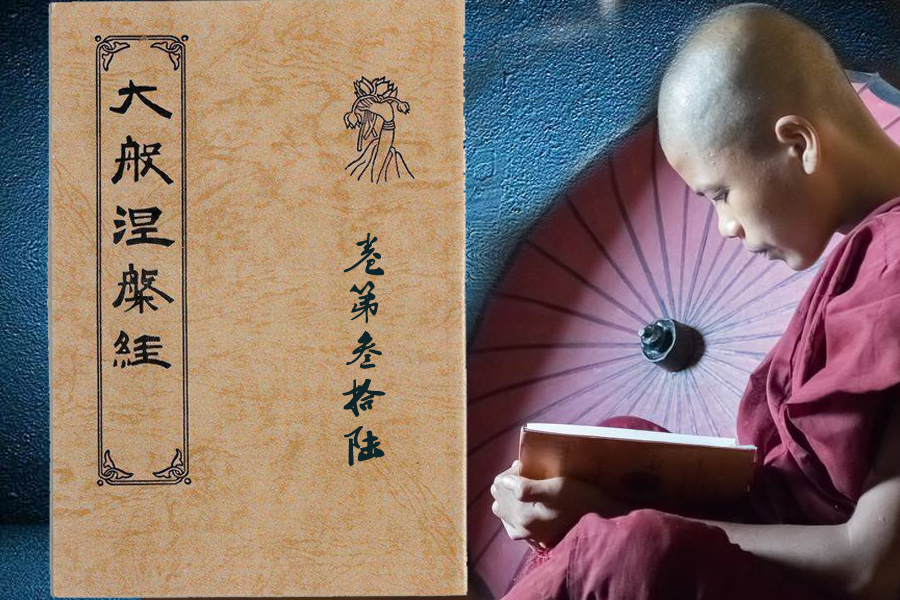 大般涅槃經
卷第叁拾陸